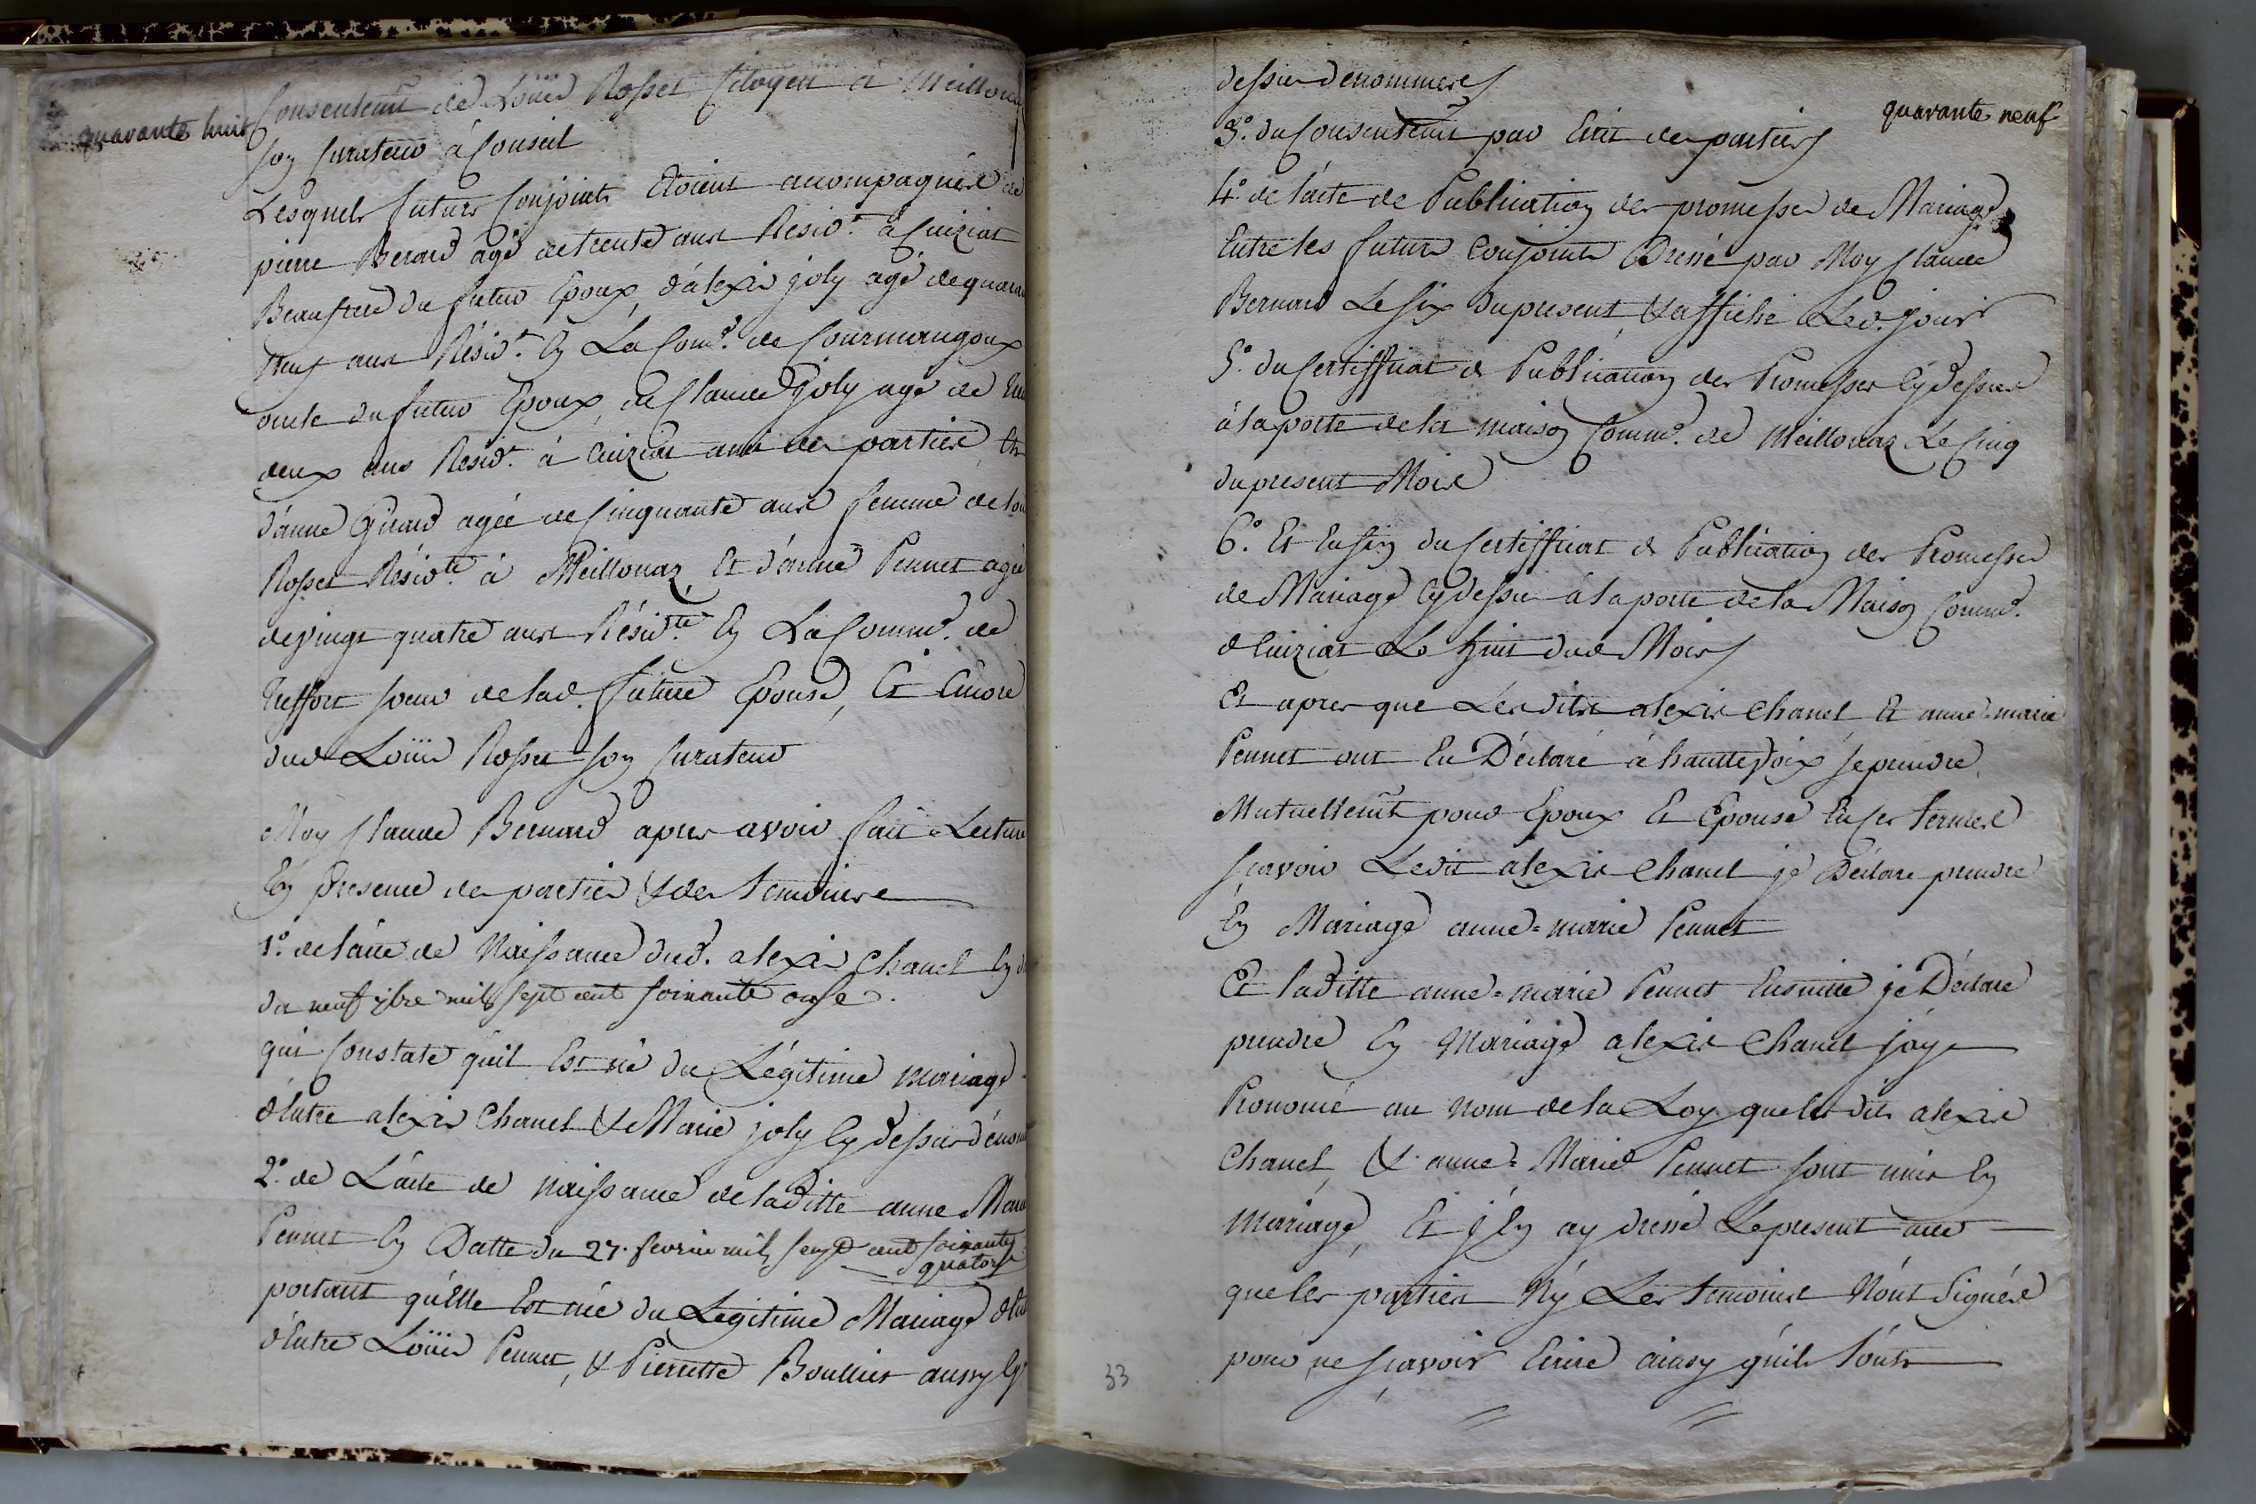 quarante huit
Consentemt de Loüis Rosset Citoyen à Meillonaz
son Curateur à Conseil
Lesquels futurs Conjoints Etoient accompagnés de
pierre Berard agé de trente ans Résidt à Cuiziat
Beaufrere du futur Epoux, d'alexis joly agé de quarante
neuf ans Résidt En La Comé de Courmangoux
oncle du futur Epoux, de Claude joly agé de
deux ans Résidt à Cuiziat ami des parties, Et
d'anne Girard agée de Cinquante ans femme de Loüis
Rosset Résidte à Meillonaz Et d'anne Pennet agée
de vingt quatre ans Résidte En La Commé de
treffort soeur de lad. future Epouse, Et Encore
dud Loüis Rosset son Curateur
Moy Claude Bernard apres avoir fait Lecture
En presence des parties & des temoins
1o. de l'acte de Naissance dud. alexis Chanel En
du neuf 7bre mil sept cent soixante onse.
qui Constate qu'il Est né du Légitime mariage
d'Entre alexis Chanel & Marie joly Cy dessus dénommés
2o. de L'acte de naissance de laditte anne Marie
Pennet En Datte du 27. fevrier mil sept cent soixante
quatorze
portant qu'Elle Est née du Legitime Mariage
d'Entre Loüis Pennet, & Pierrette Boullier aussy Cy
quarante neuf
dessus denommés
3o. du Consentemt par Ecrit des parties
4o. de l'acte de Publication des promesses de Mariage
Entre les futurs Conjoints Dressé par Moy Claude
Bernard Le six du present & affiché Led. jour
5o. du Certifficat de Publication des Promesses Cy dessus
à la porte de la maison Commé de Meillonaz Le Cinq
du present Mois
6o. Et Enfin du Certifficat de Publication des Promesses
de Mariage Cy dessus à la porte de la Maison Commé
de Cuiziat Le huit dud Mois
Et apres que Les dits alexis Chanel Et anne=marie
Pennet ont Eu Déclaré à hautte Voix se prendre
Mutuellemt pour Epoux Et Epouse En Ces termes
sçavoir Ledit alexis Chanel je Déclare prendre
En Mariage anne=marie Pennet
Et laditte anne=marie Pennet Ensuitte je Déclare
prendre En Mariage alexis Chanel j'ay
Prononcé au nom de la Loy que les dits alexis
Chanel, & anne=Marie Pennet sont unis En
mariage, Et j'En ay dressé Le present acte
que les parties Ny Les temoins N'ont Signés
pour ne sçavoir Ecrire ainsy qu'ils l'ont
33